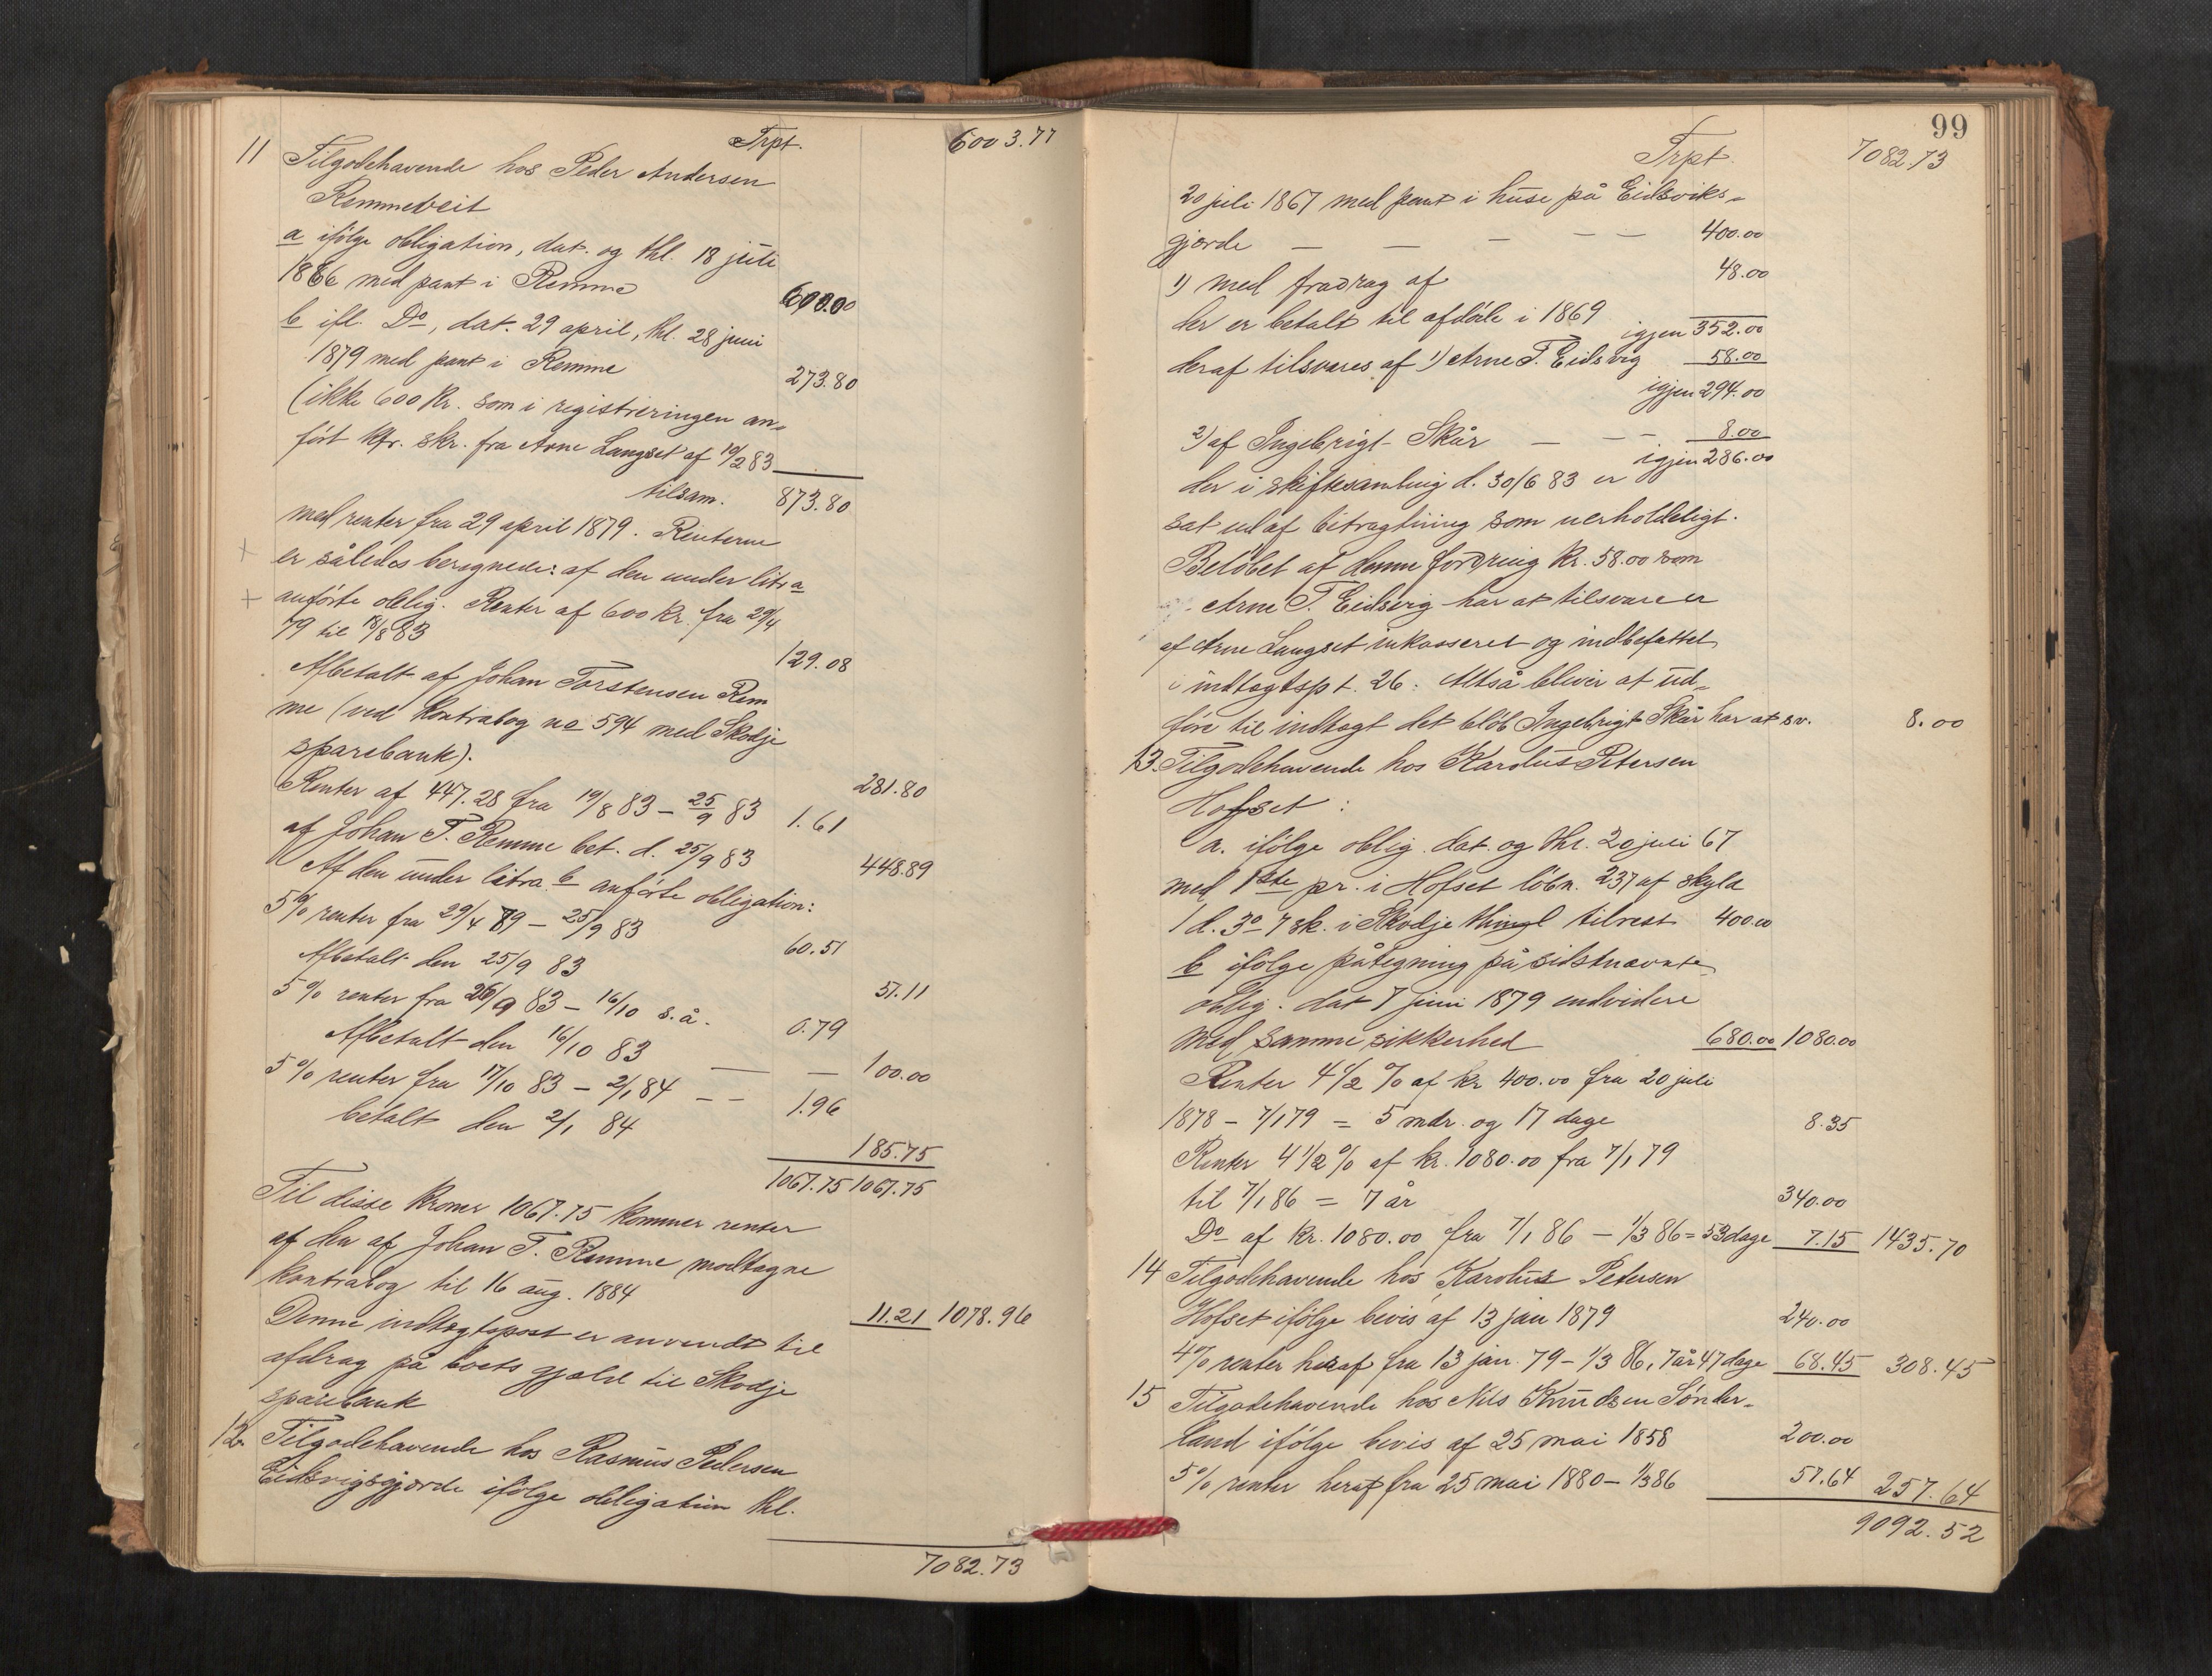 Trpt. 6003.77
11 Tilgodehavende hos Peder Andersen
Remmebeit
a ifölge obligation, dat. og thl. 18 juli
1866 med pant i Remme 600.00
b ifl. Do, dat. 29 april, thl. 28 juni
1879 med pant i Remme 273.80
(ikke 600 Kr. som i registreringen an=
fört kfr. skr. fra Arne Langset af 19/2 83
tilsam. 873.80
med renter fra 29 april 1879. Renterne
er således beregnede: af den under litr a
anförte oblig. Renter af 600 kr. fra 29/4
79 til 18/8 83 129.08
Afbetalt af Johan Torstensen Rem
me (ved Kontrabog no 594 med Skodje
sparebank). 281.80
Renter af 447.28 fra 19/8 83 – 25/9 83 1.61
af Johan T. Remme bet. d. 25/9 83 448.89
Af den under litra b anförte obligation:
5% renter fra 29/4 79 – 25/9 83 60.51
Afbetalt den 25/9 83 51.11
5% renter fra 26/9 83 – 16/10 s.å. 0.79
Afbetalt den 16/10 83 — — 100.00
5% renter fra 17/10 83 – 2/1 84 – – 1.96
betalt den 2/1 84 185.75
1067.75 1067.75
Til disse Kroner 1067.75 kommer renter
af den af Johan T. Remme modtagne
kontrabog til 16 aug. 1884 11.21 1078.96
Denne indtægtspost er anvendt til
afdrag på boets gjæld til Skodje
sparebank
12. Tilgodehavende hos Rasmus Pedersen
Eidsvigsgjærde ifölge obligation thl.
7082.73
99
Trpt. 7082.73
20 juli 1867 med pant i huse på Eidsviks=
gjerde — — – – — 400.00
1) med fradrag af 48.00
der er betalt til afdöde i 1869
igjen 352.00
deraf tilsvares af 1) Arne T. Eidsvig 58.00
igjen 294.00
2) af Ingebrigt Skår — – – 8.00
igjen 286.00
der i skiftesamling d. 30/6 83 er
sat ud af betragtning som uerholdeligt.
Belöbet af denne fordring kr. 58.00 som
Arne T. Eidsvig har at tilsvare er
af Arne Langset inkasseret og indbefattet
i indtægtspt. 26. Altså bliver at ud=
före til indtægt det blöb Ingebrigt Skår har at sv. 8.00
13. Tilgodehavende hos Karolus Petersen
Hofset :
a. ifölge oblig. dat. og thl. 20 juli 67
med 1ste pr. i Hofset löbn. 237 af skyld
1 d. 3o 7 sk. i Skodje thingl tilrest 400.00
b ifölge påtegning på sidstnævnte
oblig. dat 7 juni 1879 endvidere
med samme sikkerhed 680.00 1080.00
Renter 4 1/2 % af kr 400.00 fra 20 juli
1878 – 7/1 79 = 5 mdr. og 17 dage 8.35
Renter 4 1/2 % af kr. 1080.00 fra 7/1 79
til 7/1 86 = 7 år 340.00
Do af kr. 1080.00 fra 7/1 86 – 1/3 86 = 53 dage 7.15 1435.70
14 Tilgodehavende hos Karolus Petersen
Hofset ifölge bevis af 13 jan 1879 240.00
4% renter heraf fra 13 jan. 79 – 1/3 86, 7 år 47 dage 68.45 308.45
15 Tilgodehavende hos Nils Knudsen Sönder=
land ifölge bevis af 25 mai 1858 200.00
5% renter heraf fra 25 mai 1880 – 1/3 86 57.64 257.64
9092.52